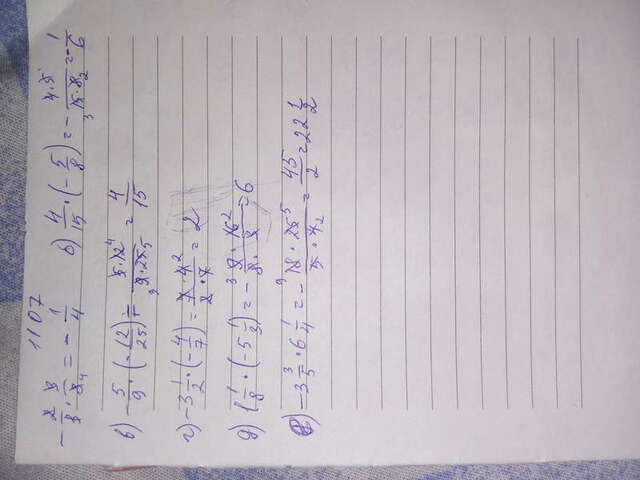 1107
-2/3 · 3/8 = -1/4 б) 4/15 · (-5/8) = - 4·5/15·8 = -1/6
в) -5/9 · (-12/25) = 5·12/9·25 = 4/15
г) -3 1/2 · (-4/7) = 7·4/2·7 = 2
д) 1 1/8 · (-5 1/3) = - 9·16/8·3 = 6
е) -3 3/5 · 6 1/4 = - 18·25/5·4 = 45/2 = 22 1/2